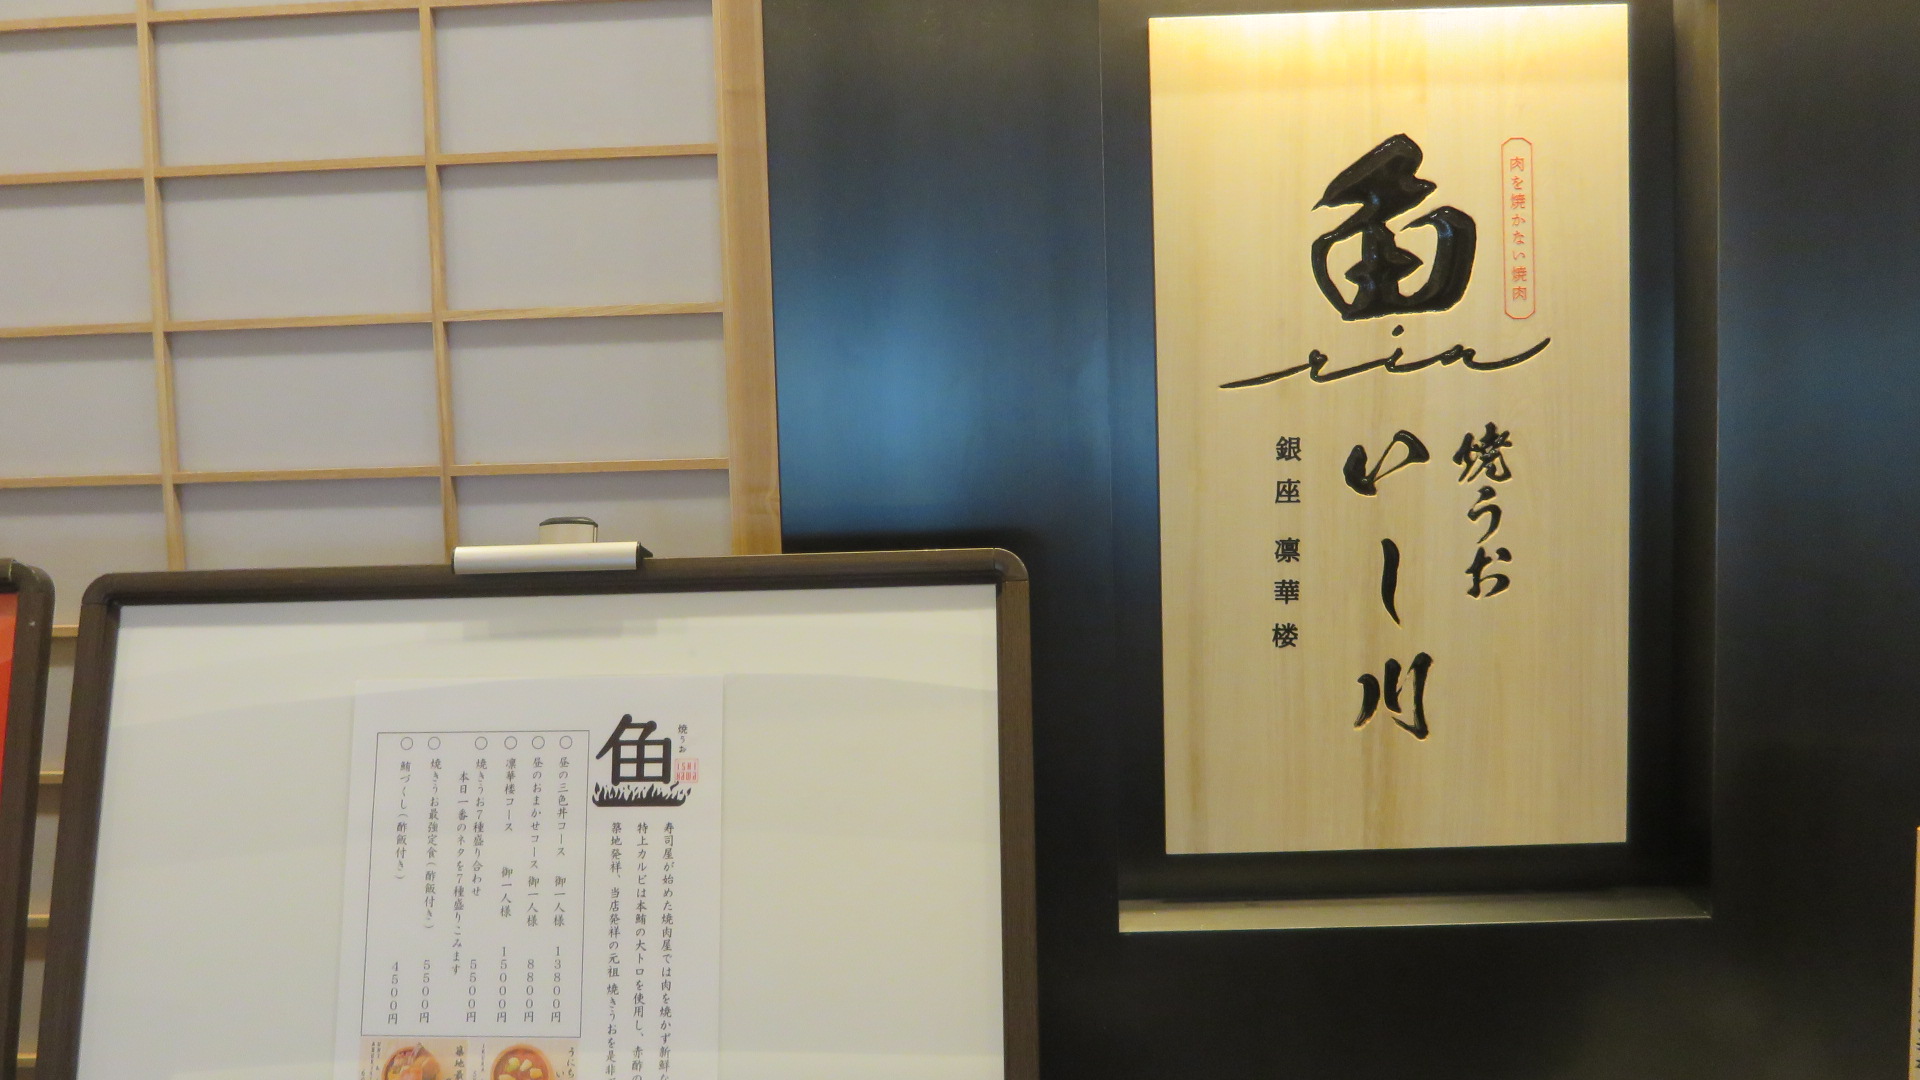 肉を焼かない焼肉
魚
rin
焼うお
いし川
銀座 凛華楼
焼うお
魚
寿司屋が始めた焼肉屋では肉を焼かず新鮮な
特上カルビは本鮪の大トロを使用し、赤酢の
築地発祥、当店発祥の元祖 焼きうおを是非
〇 昼の三色丼コース 御一人様 13800円
〇 昼のおまかせコース 御一人様 8800円
〇 凛華楼コース 御一人様 15000円
〇 焼きうお7種盛り合わせ 5500円
本日一番のネタを7種盛りこみます
〇 焼きうお最強定食(酢飯付き) 5500円
〇 鮪づくし(酢飯付き) 4500円